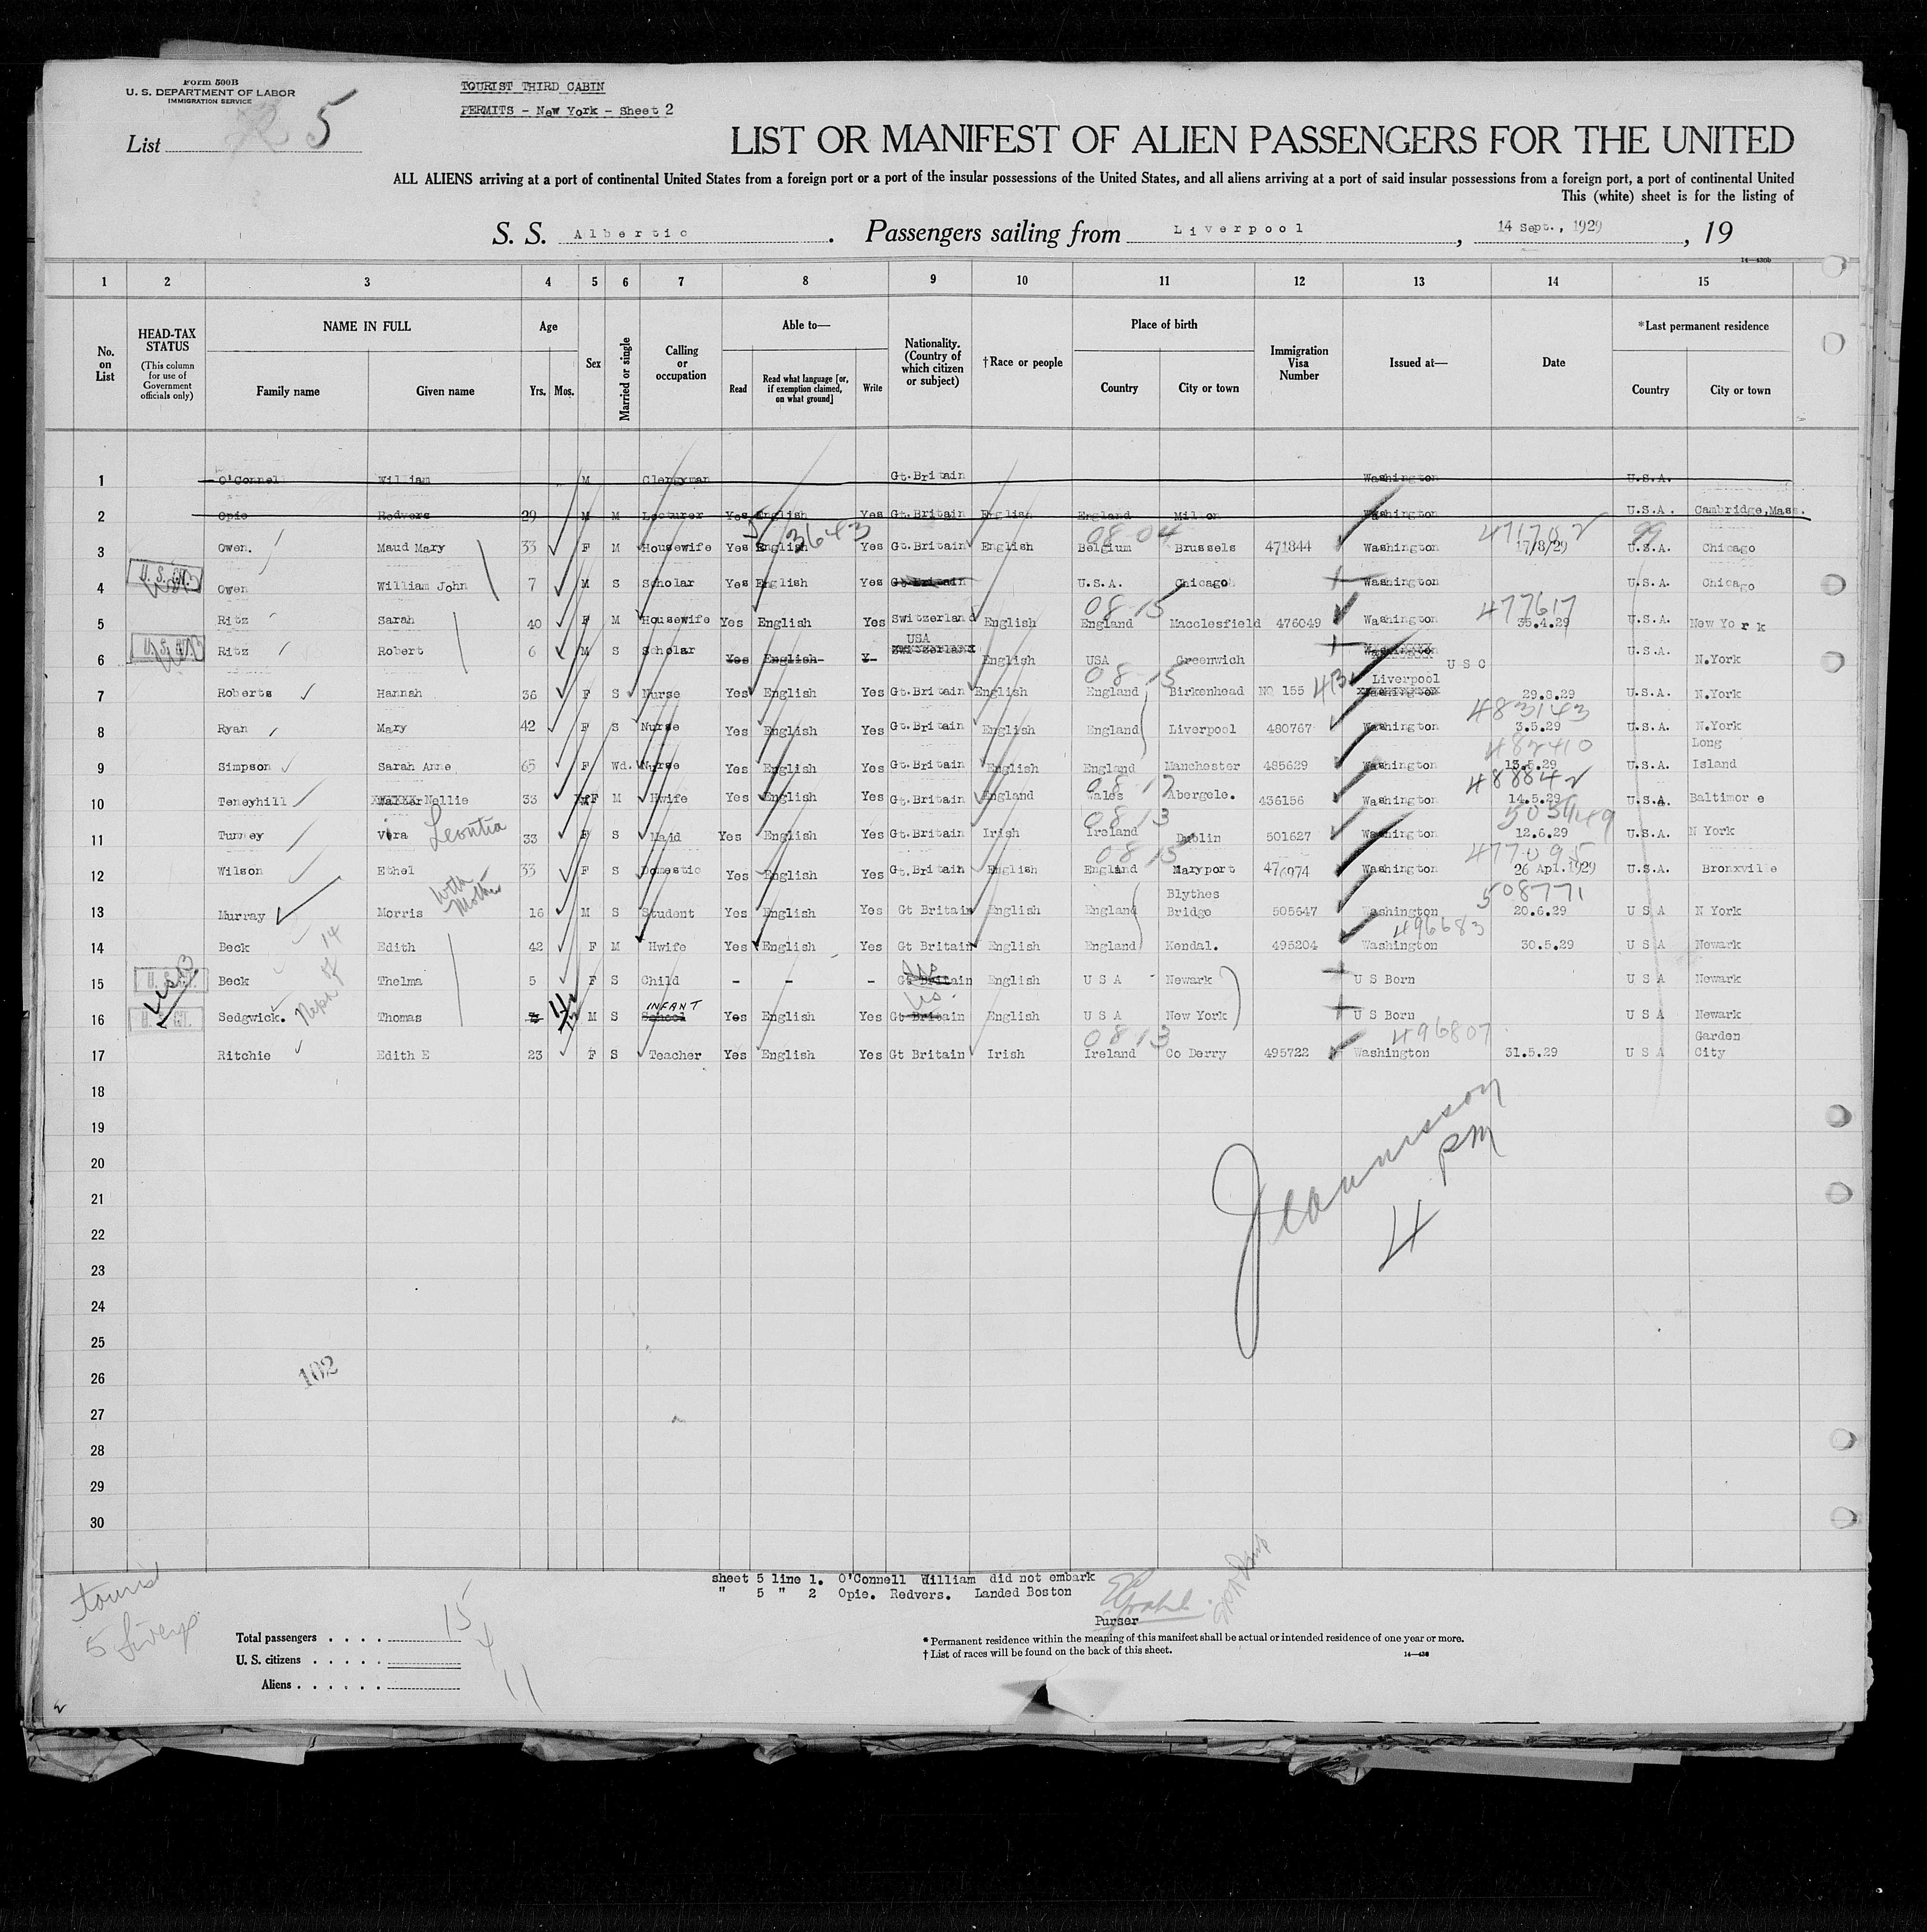 Form 500B
U. S. DEPARTMENT OF LABOR
IMMIGRATION SERVICE
TOURIST THIRD CABIN
PERMITS - New York - Sheet 2
List 5
LIST OR MANIFEST OF ALIEN PASSENGERS FOR THE UNITED
ALL ALIENS arriving at a port of continental United States from a foreign port or a port of the insular possessions of the United States, and all aliens arriving at a port of said insular possessions from a foreign port, a port of continental United
This (white) sheet is for the listing of
S. S. Albertic. Passengers sailing from Liverpool, 14 Sept., 1929, 19
14—430b
1 2 3 4 5 6 7 8 9 10 11 12 13 14 15
No. on List
HEAD-TAX STATUS (This column for use of Government officials only)
NAME IN FULL
Family name Given name
Age
Yrs. Mos.
Sex
Married or single
Calling or occupation
Able to—
Read Read what language [or, if exemption claimed, on what ground] Write
Nationality. (Country of which citizen or subject)
†Race or people
Place of birth
Country City or town
Immigration Visa Number
Issued at—
Date
*Last permanent residence
Country City or town
1 O'Connell William M Clergyman Gt.Britain Washington U.S.A.
2 Opie Redvers 29 M M Lecturer Yes English Yes Gt.Britain English England Milton Washington U.S.A. Cambridge,Mass.
3643 08-04 471782 99
3 Owen. Maud Mary 33 F M Housewife Yes English Yes Gt.Britain English Belgium Brussels 471844 Washington 17/8/29 U.S.A. Chicago
4 Owen William John 7 M S Scholar Yes English Yes Gt.Britain U.S.A. Chicago Washington U.S.A. Chicago
08-15 477617
5 Ritz Sarah 40 F M Housewife Yes English Yes Switzerland English England Macclesfield 476049 Washington 35.4.29 U.S.A. New York
USA
6 Ritz Robert 6 M S Scholar Yes English Y- English USA Greenwich Washington U S C U.S.A. N.York
08-15 Liverpool
7 Roberts Hannah 36 F S Nurse Yes English Yes Gt.Britain English England Birkenhead NQ 155 29.8.29 U.S.A. N.York
483143
8 Ryan Mary 42 F S Nurse Yes English Yes Gt.Britain English England Liverpool 480767 Washington 3.5.29 U.S.A. N.York
482410 Long
9 Simpson Sarah Anne 65 F Wd. Nurse Yes English Yes Gt.Britain English England Manchester 485629 Washington 13.5.29 U.S.A. Island
08-17 488842
10 Teneyhill Nellie 33 F M Hwife Yes English Yes Gt.Britain England Wales Abergele. 436156 Washington 14.5.29 U.S.A. Baltimore
08 13
11 Tunney Vera Leontia 33 F S Maid Yes English Yes Gt.Britain Irish Ireland Dublin 501627 Washington 12.6.29 U.S.A. N York
08 15 477095
12 Wilson Ethel 33 F S Domestic Yes English Yes Gt.Britain English England Maryport 476974 Washington 26 Apl.1929 U.S.A. Bronxville
with Mother Blythes 508771
13 Murray Morris 16 M S Student Yes English Yes Gt Britain English England Bridge 505647 Washington 20.6.29 U S A N York
496683
14 Beck Edith 42 F M Hwife Yes English Yes Gt Britain English England Kendal. 495204 Washington 30.5.29 U S A Newark
Neph of 14
15 Beck Thelma 5 F S Child - - - Gt Britain English U S A Newark U S Born U S A Newark
INFANT US.
16 Sedgwick. Thomas M S School Yes English Yes Gt Britain English U S A New York U S Born U S A Newark
08 13 496807 Garden
17 Ritchie Edith E 23 F S Teacher Yes English Yes Gt Britain Irish Ireland Co Derry 495722 Washington 31.5.29 U S A City
18
19
20
21
22
23
24
25
26
27
28
29
30
4 PM
102
sheet 5 line 1. O'Connell William did not embark
" 5 " 2 Opie. Redvers. Landed Boston
Purser
Total passengers . . . . 15
U. S. citizens . . . . . 4
Aliens . . . . . . 11
* Permanent residence within the meaning of this manifest shall be actual or intended residence of one year or more.
† List of races will be found on the back of this sheet.
14—430